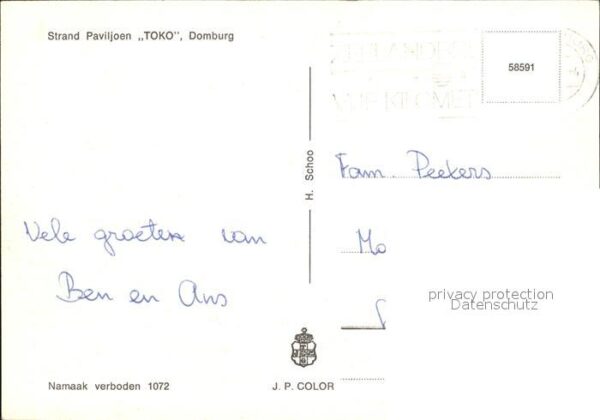 Strand Paviljoen „TOKO”, Domburg
58591
H. Schoo
Fam. Peekers
Mo
Vele groeten van
Ben en Ans
privacy protection
Datenschutz
Namaak verboden 1072
J. P. COLOR